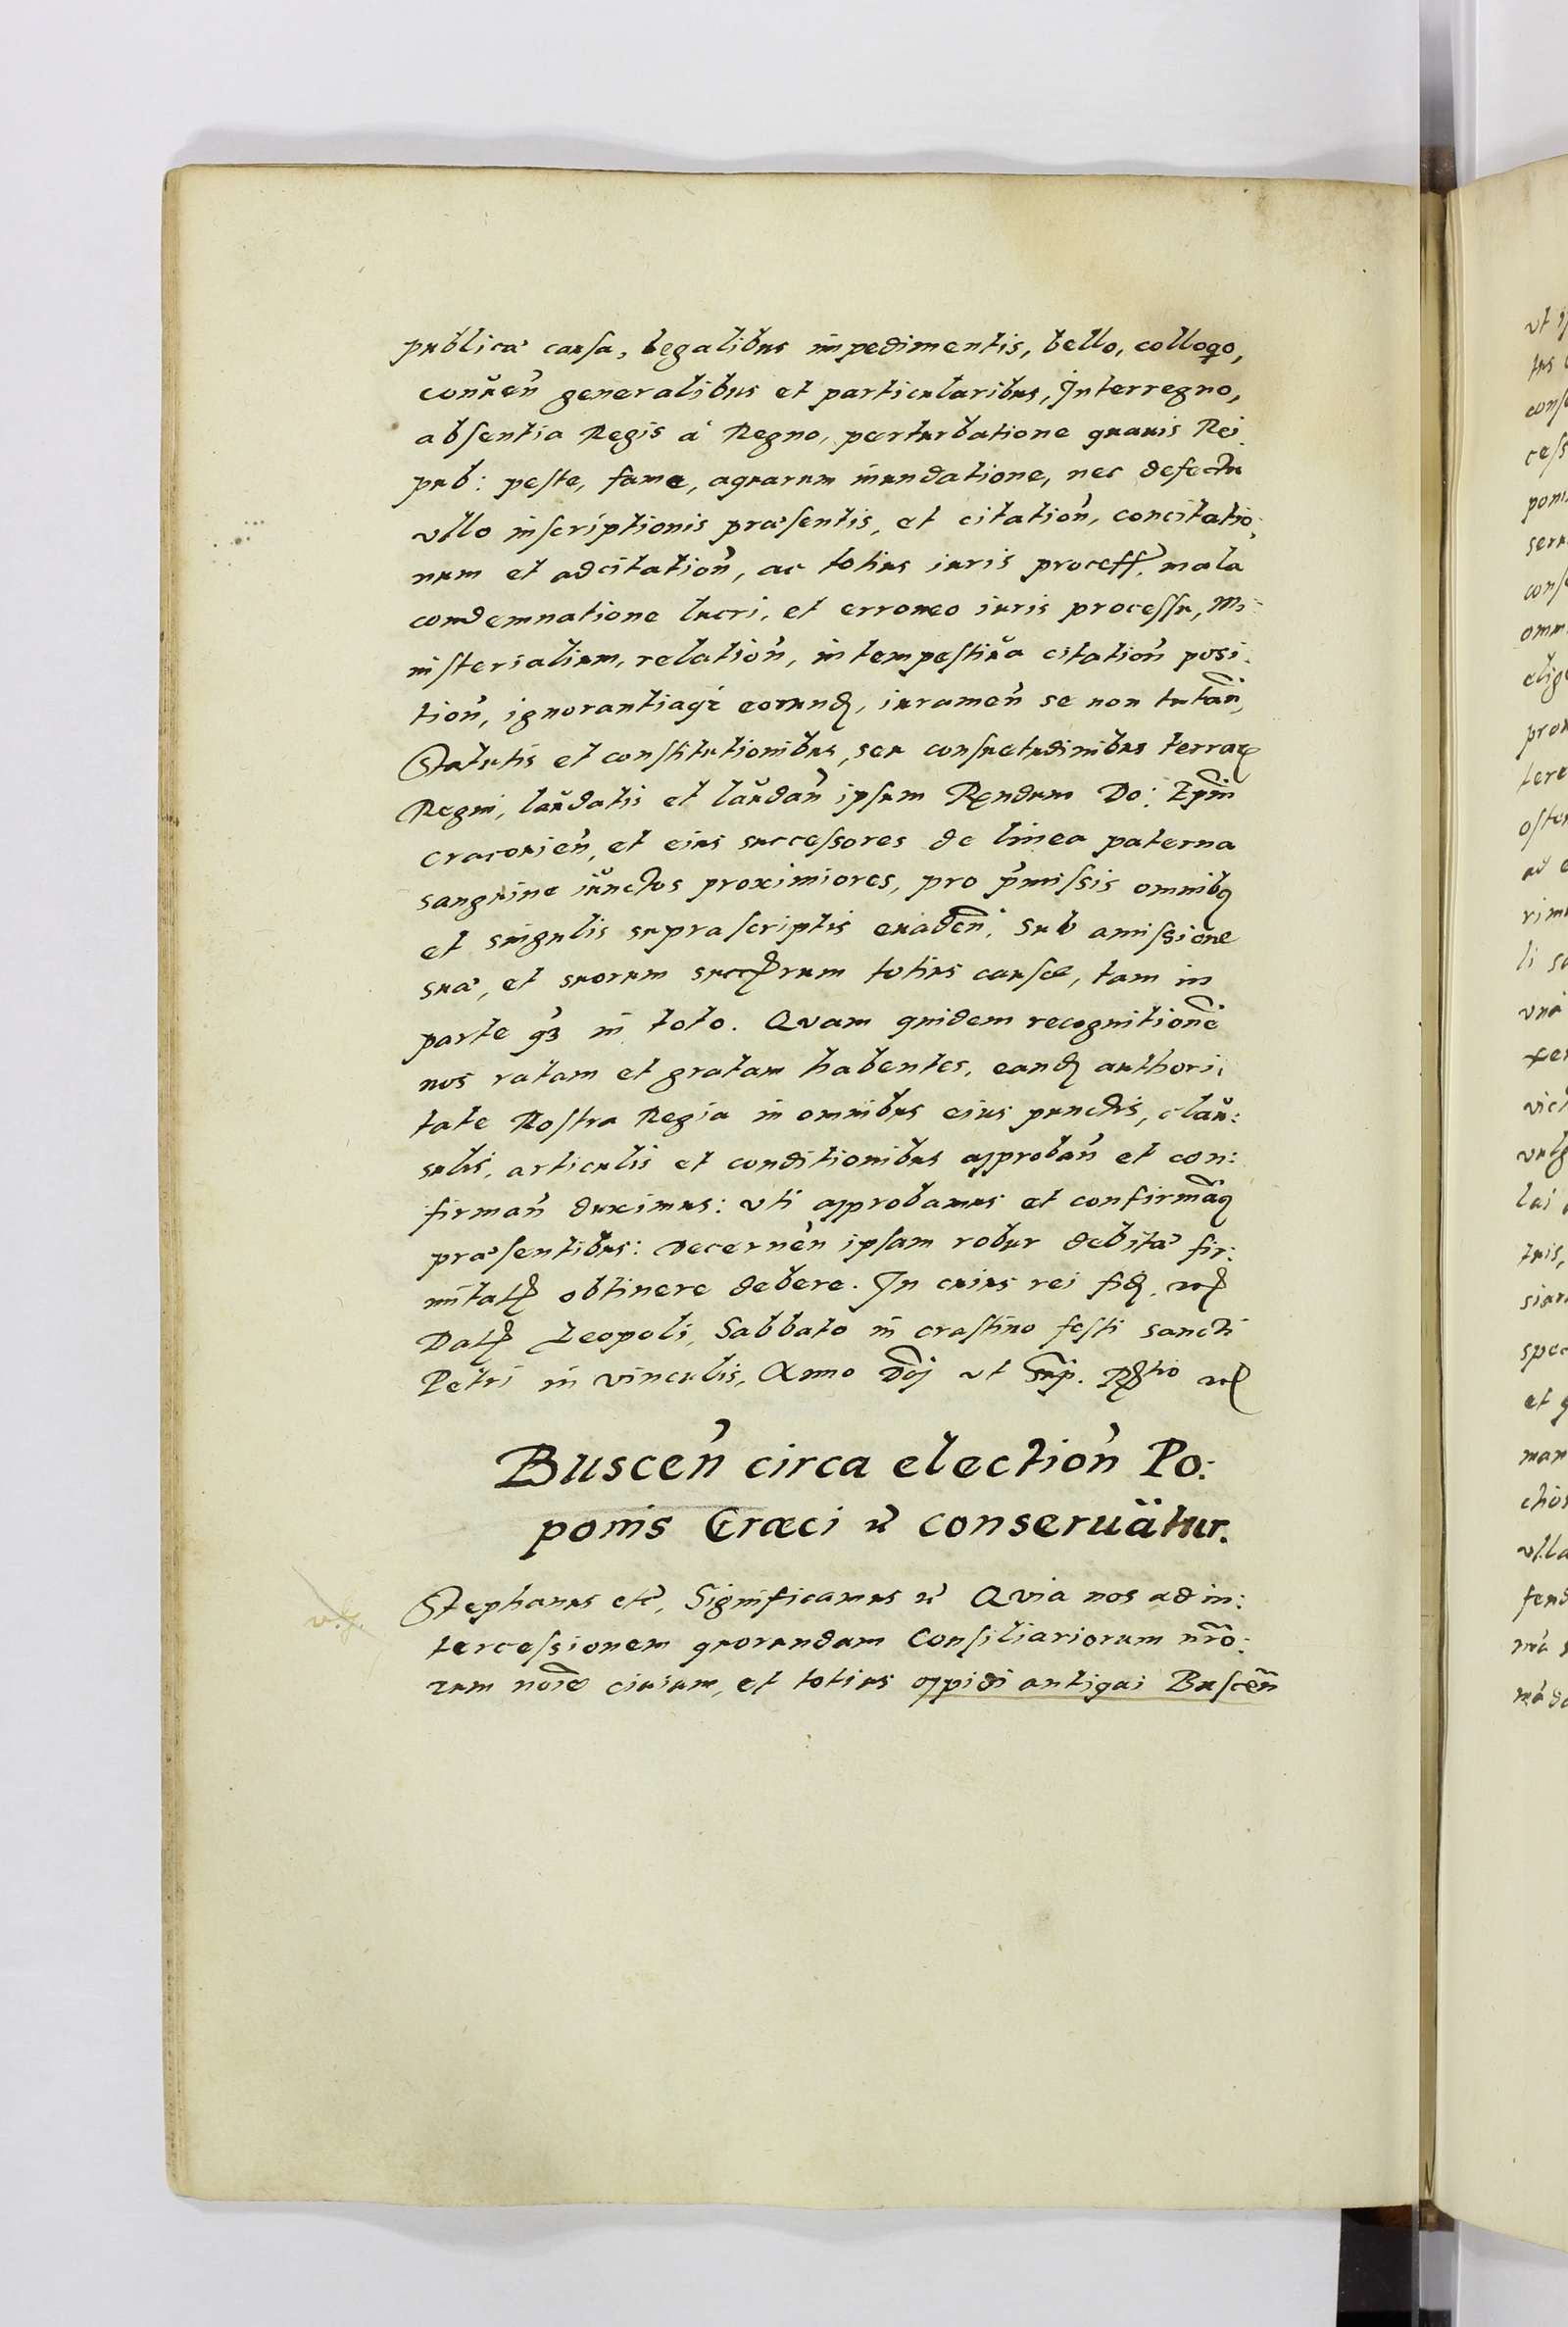 publica causa, legalibus impedimentis, bello, colloqo,
conuen̄ generalibus et particularibus, Interregno,
absentia Regis à Regno, perturbatione quauis Rei
pub: peste, fame, aquarum inundatione, nec defectu
vllo inscriptionis præsentis, et citation̄, concitatio:
num et adcitation̄, ac totius iuris process, mala
condemnatione lucri, et erroneo iuris processu, Mi:
nisterialium, relation̄, intempestiua citation̄ posi:
tion̄, ignorantiaq; eorund, iuramen̄ se non tutan̄,
Statutis et constitutionibus, seu consuetudinibus terrar
Regni, laudatis et laudan̄ ipsum Rendum Do: Epm̄
cracouien̄, et eius successores de linea paterna
sanguine iunctos proximiores, pro pm̄issis omnibq
et singulis suprascriptis euaden̄, sub amissione
sua, et suorum succrum totius causæ, tam in
parte q̄3 in toto. Quam quidem recognitionē
nos ratam et gratam habentes, eand authori:
tate Nostra Regia in omnibus eius punctis, clau:
sulis, articulis et conditionibus approban̄ et con:
firman̄ duximus: vti approbamus et confirmāq
præsentibus: Decernen̄ ipsam robur debita fir:
mitat obtinere debere. In cuius rei fid,
Dat Leopoli, Sabbato in crastino festi sancti
Petri in vinculis, Anno Dn̄j vt Sup.
Buscen̄ circa election̄ Po:
ponis Græci et conseruātur.
Stephanus etc, Significamus et Quia nos ad in:
tercessionem quorundam Consiliariorum nr̄o:
rum noīe ciuium, et totius oppidi antiqui Buscen̄